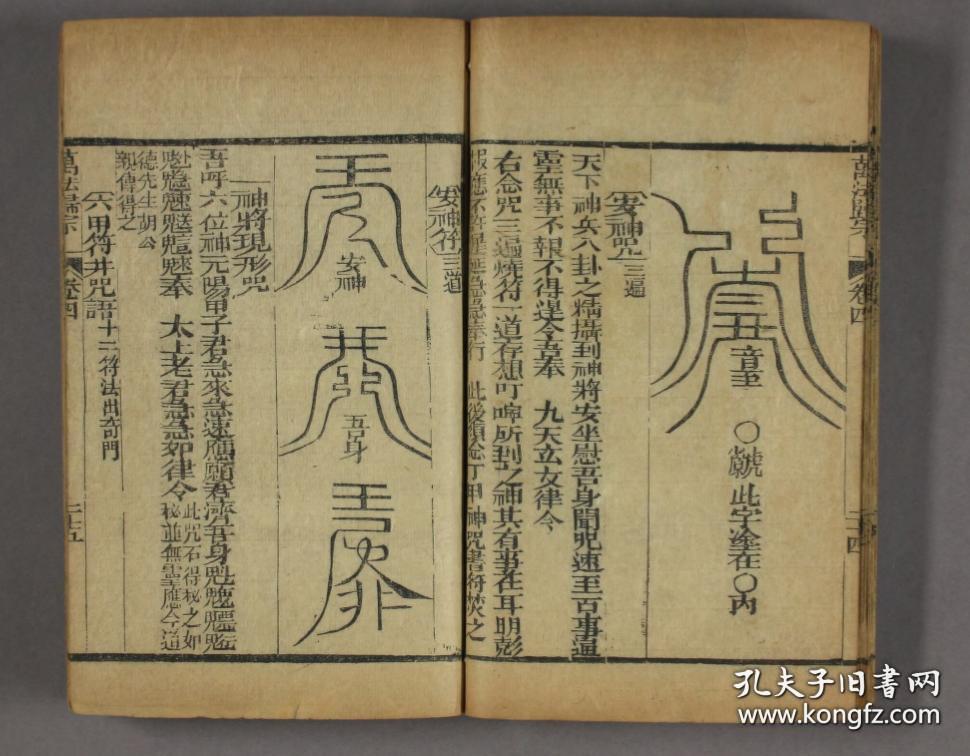 萬法歸宗
卷四
二十四
音
此字塗在〇內
安神咒三遍
天下神兵八卦之精攝到神將安坐慰吾身聞咒速至百事遍
靈無事不報不得遲令吾奉 九天玄女律令
右念咒三遍燒符一道存想叮嚀所到之神其有事在耳明彰
報應不許遲延急急奉行 此後須念丁甲神咒書符焚之
安神符三道
安神
吾身
神將現形咒
吾呼六位神元陽甲子君急來急速應願君濟吾身
奉 太上老君急急如律令
此咒石得秘之如
秘並無靈應今道
德先生胡公
親傳得之
六甲符并咒語十二符法出奇門
萬法歸宗
卷四
二十五
孔夫子旧書网
www.kongfz.com